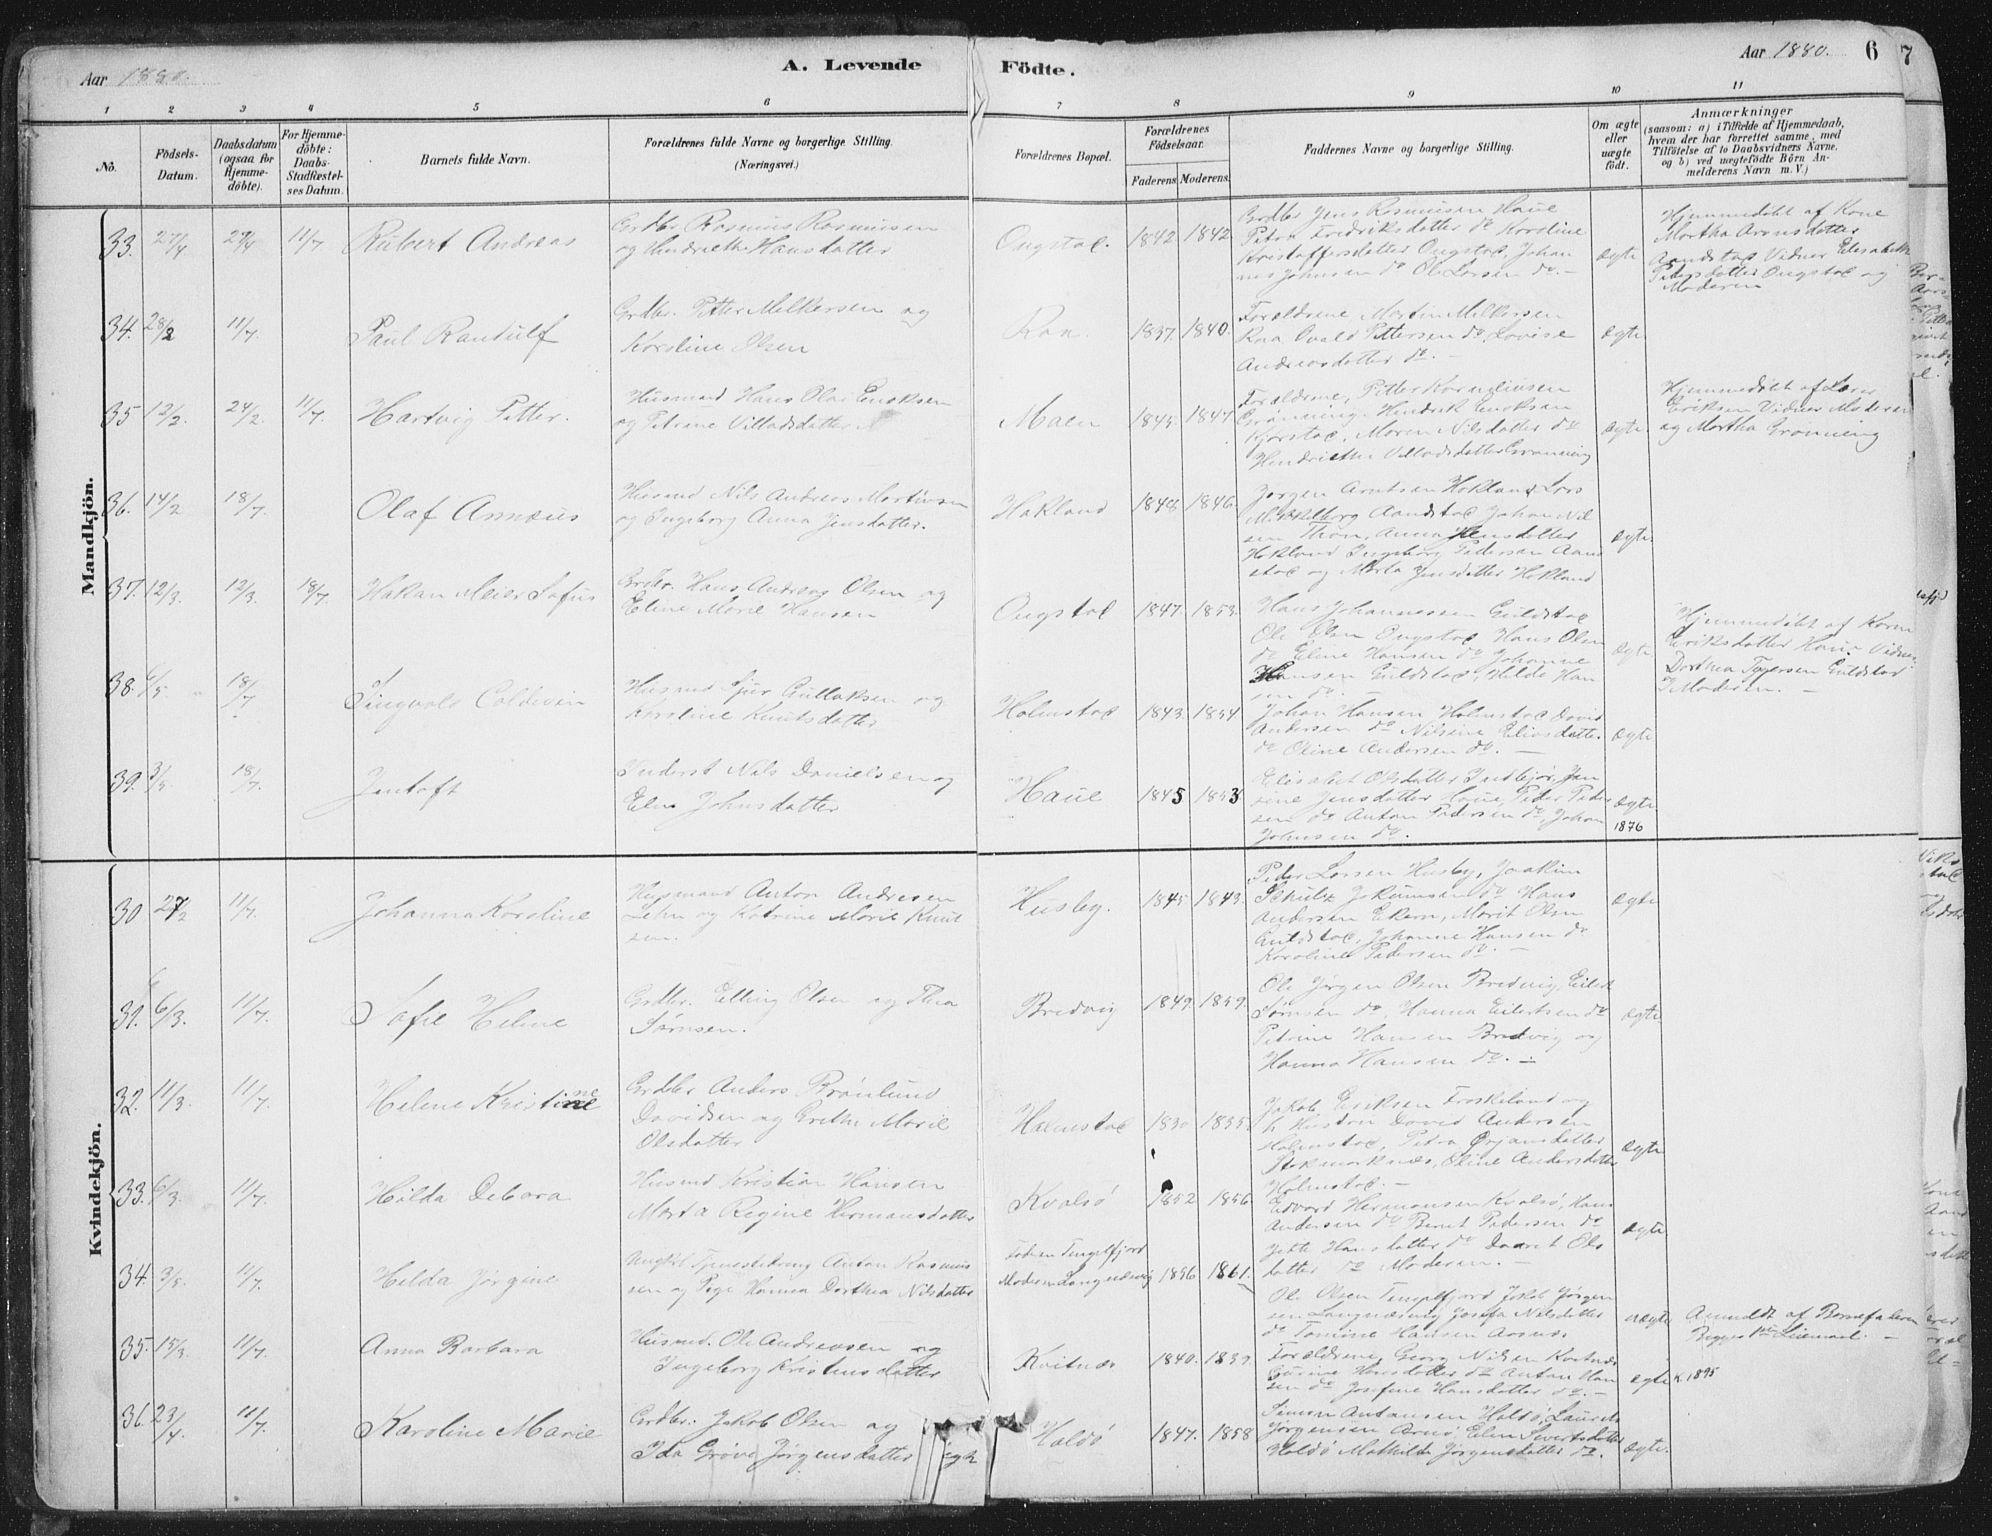 Aar 1880.
A. Levende Födte.
Aar 1880. 6 7
1 2 3 4 5 6 7 8 9 10 11
No.
Födsels-Datum.
Daabsdatum (ogsaa for Hjemmedöbte).
For Hjemmedöbte: Daabs-Stadfæstelses Datum.
Barnets fulde Navn.
Forældrenes fulde Navne og borgerlige Stilling. (Næringsvei.)
Forældrenes Bopæl.
Forældrenes Födselsaar.
Faderens. Moderens.
Faddernes Navne og borgerlige Stilling.
Om ægte eller uægte födt.
Anmærkninger (saasom: a) i Tilfælde af Hjemmedaab, hvem der har forrettet samme, med Tilföielse af to Daabsvidners Navne, og b) ved uægtefödte Börn Anmelderens Navn m. V.)
Mandkjön.
33. 27/4 29/4 11/7 Rubert Andreas
Grdbr Rasmus Rasmussen
og Hendrikke Hansdatter
Ongstad. 1842 1842
Grdbr Jens Rasmussen Haue
Petra Fredriksdatter do Karoline
Kristoffersdatter Ongstad, Johan
nes Johnsen do Ole Larsen do. -
ægte
Hjemmedöbt af Kone
Martha Aronsdatter
Aandstad Vidner Elisabeth
Pedersdatter Ongstad og
Moderen
34. 28/2 11/7 Paul Randulf
Grdbr. Petter Melkersen og
Karoline Olsen
Raa. 1837. 1840.
Forældrene Martin Melkersen
Raa Ovald Pettersen do, Lovise
Andreasdatter do. -
ægte
35 12/2. 24/2 11/7. Hartvig Petter.
Husmand Hans Olai Eriksen
og Petrine Villadsdatter
Maen 1845. 1847
Forældrene, Petter Korneliussen
Grønning, Hendrik Eriksen
Kjørstad, Maren Nilsdatter do
Hendrikke Villadsdatter Grønning
ægte
Hjemmedöbt af Lars
Eriksen Vidner Moderen
og Martha Grønning
36. 14/2 18/7. Olaf Annæus
Husmd Nils Andreas Martinsen
og Ingeborg Anna Jensdatter.
Hokland 1848 1846.
Jørgen Arntsen Hokland Lars
Mikkelborg Aandstad Johan Nil
sen Thøn, Anna Jensdatter
Hokland Ingeborg Pedersen Aand
stad og Marta Jensdatter Hokland
ægte
37. 12/3. 12/3. 18/7. Hakan Meier Sofus
Grdbr. Hans Andreas Olsen og
Eline Marie Hansen
Ongstad 1847. 1853.
Hans Johannessen Guldstad
Ole Olsen Ongstad, Hans Olsen
do Eline Hansen do Johanne
Hansen Guldstad, Hilda Han
sen do. -
ægte
Hjemmedöbt af Karen
Eriksdatter Haue Vidner
Dorthea Tygesen Guldstad
Moderen. -
38. 6/5 18/7 Singvald Coldevin
Husmd Sjur Gullaksen og
Karoline Knutsdatter
Holmstad 1843. 1854
Johan Hansen Holmstad David
Andersen do Nilsine Eliasdatter.
do Oline Andersen do. -
ægte
39. 3/5. 18/7. Jentoft
Inderst Nils Danielsen og
Elen Johnsdatter
Haue 1845 1853
Elisabet Olsdatter Indbjør, Jen
sine Jensdatter Haue, Peder Peder
sen do Anton Pedersen do, Johan
Johnsen do.
ægte 1876
Kvindekjön.
30 27/2 11/7. Johanna Karoline
Husmand Anton Andresen
Lehn og Katrine Marie Knut
sen.
Husby. 1845 1843.
Peder Larsen Husby, Joakim
Schultz Jokumsen do Hans
Andersen Ekern, Marit Olsen
Guldstad, Johanne Hansen do
Karoline Pedersen do. -
ægte
31. 6/3. 11/7. Sofie Helene
Grdbr. Elling Olsen og Thea
Sørnsen.
Bredvig 1849. 1859.
Ole Jørgen Olsen Bredvig, Eilert
Sørnsen do, Hanna Eilertsen do
Petrine Hansen Bredvig og
Hanna Hansen do. -
ægte
32. 11/3. 11/7. Helene Kristine
Grdbr Anders Brønlund
Davidsen og Grethe Marie
Olsdatter
Holmstad 1830 1835.
Jakob Eriksen Froskeland og
h. Hustru David Andersen
Holmstad, Petra Ørjansdatter
Stokmarknæs, Oline Andersdatter
Holmstad. -
ægte
33. 6/3. 11/7. Hilda Debora
Husmd Kristian Hansen
Marta Regine Hermansdatter
Kvalsö 1852 1856
Edvard Hermansen Kvalsö, Hans
Andersen do Berit Pedersen do
Jette Hansdatter do Daaret Ols
datter do Moderen. -
ægte
34. 3/5. 11/7. Hilda Jørgine
Ungkl Tjenestedreng Anton Rasmus
sen og Pige Hanna Dorthea Nilsdatter
Faderen Tengelfjord
Moderen Langnæsvig 1856 1861.
Ole Olsen Tengelfjord Jakob Jørgen
sen Langnæsvig Josefa Nilsdatter
do Tomine Hansen Aarnæs
uægte
Anmeldt af Barnefaderen
35. 15/3. 11/7. Anna Barbara
Husmd. Ole Andreasen og
Ingeborg Kristensdatter
Kvitnæs 1840. 1839.
Forældrene, Georg Nilsen Kvitnæs
Gurine Hansdatter do Anton Han
sen do Josefine Hansdatter do. -
ægte k. 1895
36. 23/4 11/7. Karoline Marie
Grdbr. Jakob Olsen og
Ida Grøva Jørgensdatter
Haldö 1847. 1858
Simon Antonsen Haldö, Laurits
Jørgensen Arnö, Elen Sivertsdatter
Haldö Mathilde Jørgensdatter do.
ægte.